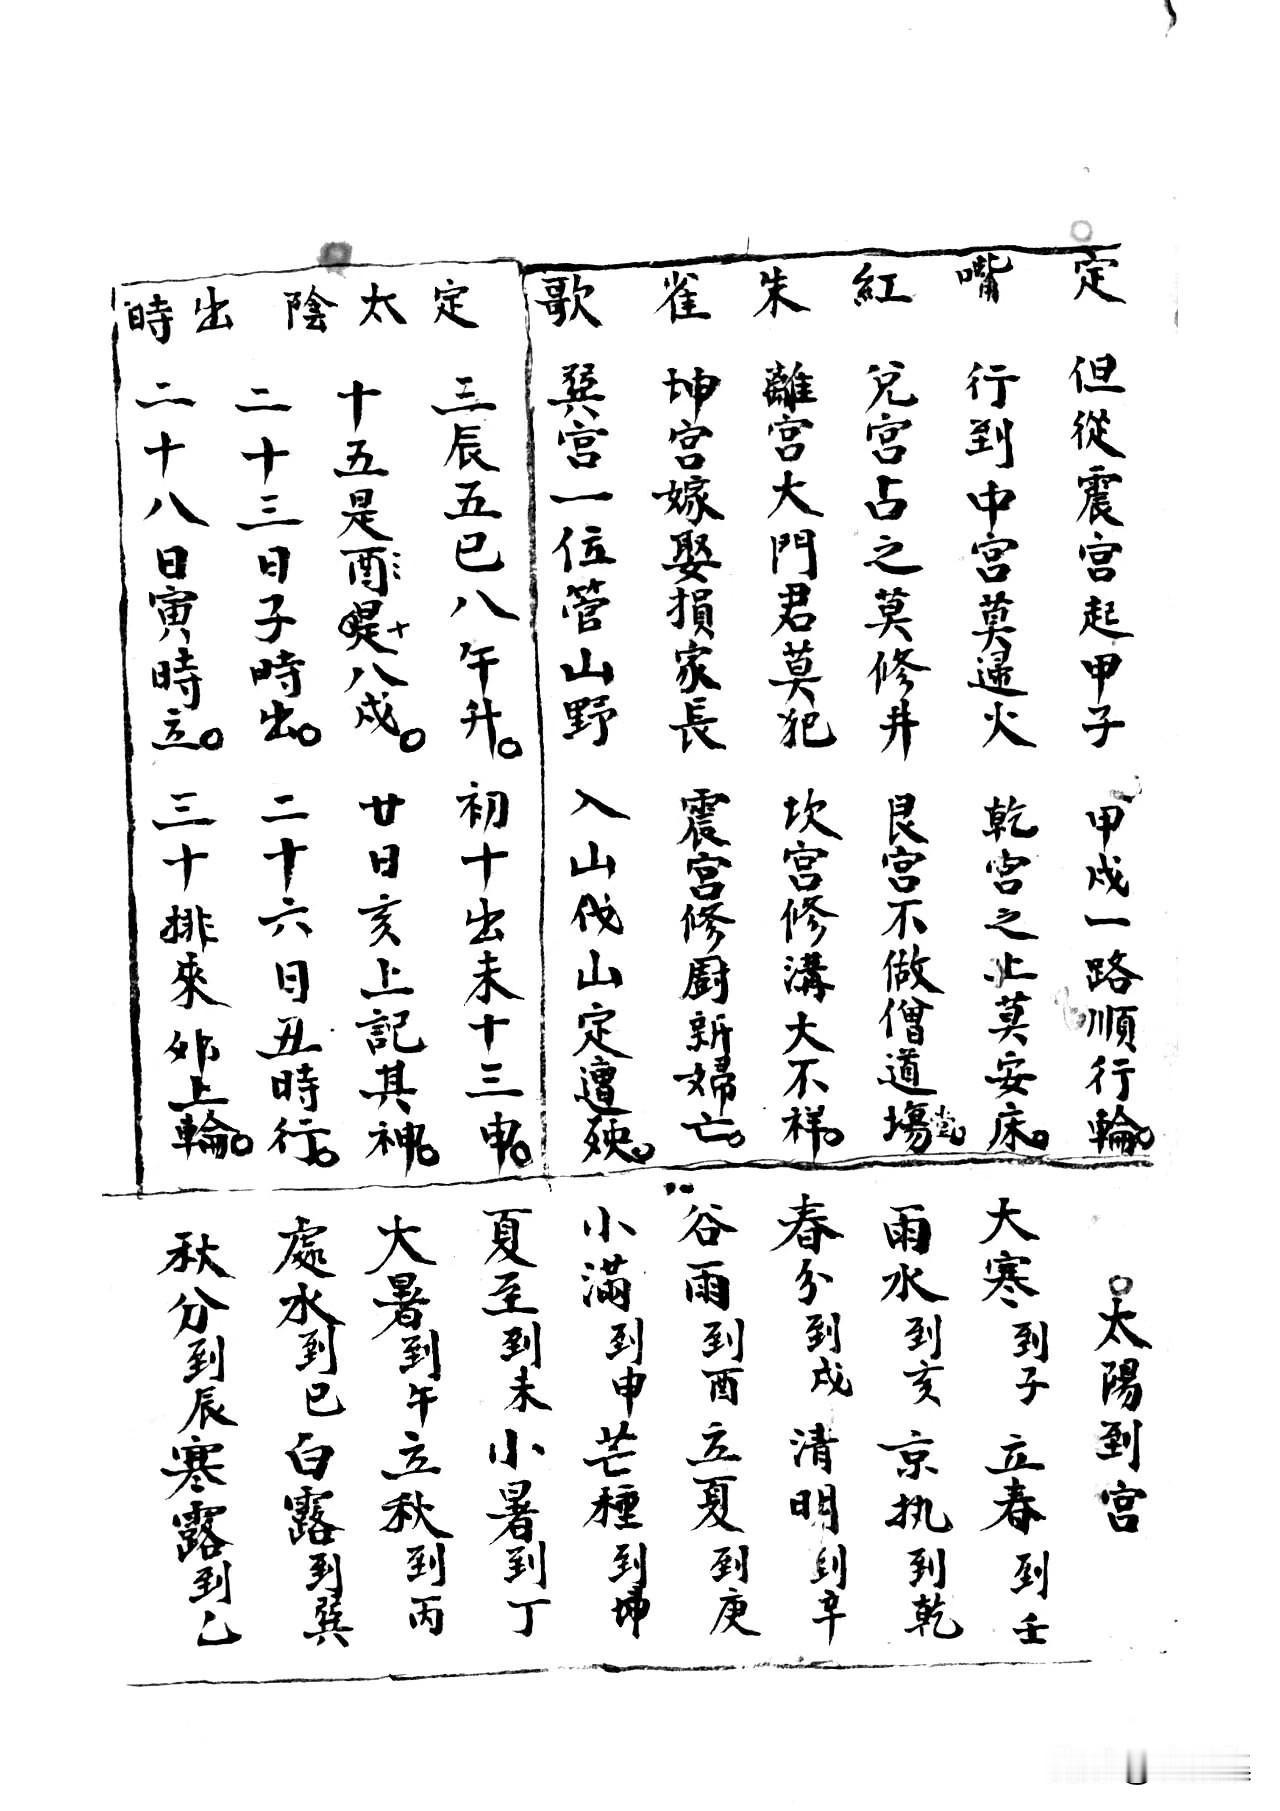 定嘴紅朱雀歌
但從震宮起甲子 甲戌一路順行輪。
行到中宮莫火 乾宮之止莫安床。
兌宮占之莫修井 艮宮不做僧道場堂。
離宮大門君莫犯 坎宮修溝大不祥。
坤宮嫁娶損家長 震宮修廚新婦亡。
巽宮一位管山野 入山伐山定遭殃。
定太陰出時
三辰五巳八午升。 初十出未十三申。
十五是酉十八戌。 廿日亥上記其神。
二十三日子時出。 二十六日丑時行。
二十八日寅時立。 三十排來卯上輪。
○太陽到宮
大寒到子 立春到壬
雨水到亥 京执到乾
春分到戌 清明到辛
谷雨到酉 立夏到庚
小滿到申 芒種到坤
夏至到未 小暑到丁
大暑到午 立秋到丙
處水到巳 白露到巽
秋分到辰 寒露到乙